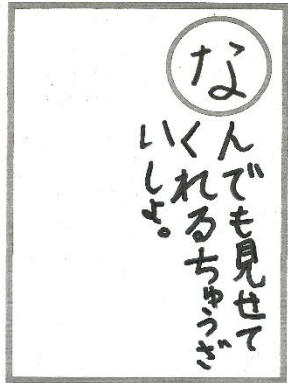 な
んでも見せて
くれるちゅうざ
いしょ。